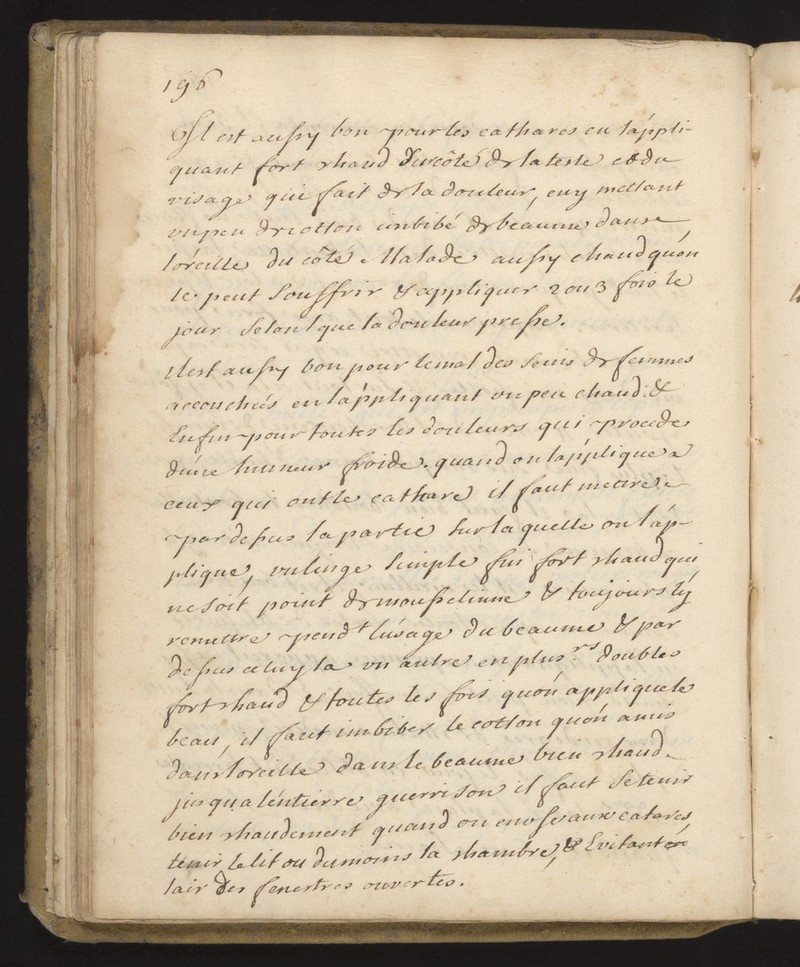 196
Il est aussy bon pour les cathares en l'áppli-
quant fort chaud sur côté de la teste et du
visage qui fait de la douleur, en y mettant
un peu de cotton imbibé de beaume dans
l'oreille du côté Malade aussy chaud qu'on
le peut Souffrir & appliquer 2 ou 3 fois le
jour Selon que la douleur presse.
Il est aussy bon pour le mal des seins de femmes
accouchés en l'áppliquant un peu chaud: &
Enfin pour toutes les douleurs qui procede
d'une humeur froide. quand on l'ápplique a
ceux qui ont le cathare il faut mettre
par dessus la partie sur laquelle on l'áp-
plique, un linge simple fin fort chaud qui
ne soit point de mousselinne & toujours l'y
remettre pendt l'usage du beaume & par
dessus celuy la un autre en plusrs doubles
fort chaud & toutes les fois qu'on applique le
beau, il faut imbiber le cotton qu'on a mis
dans l'oreille dans le beaume bien chaud
jusqu'a l'entierre guerrison il faut se tenir
bien chaudement quand on en use aux catares,
tenir le lit ou du moins la chambre, & Evitant
l'air des fenestres ouvertes.